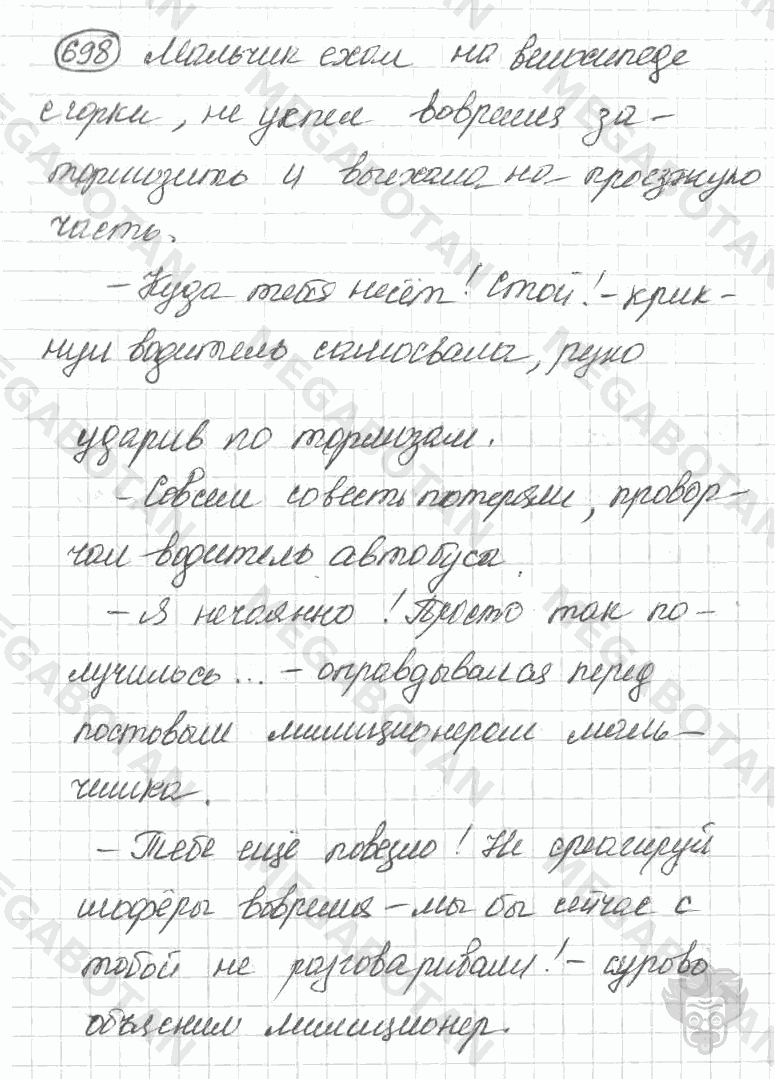 698 Мальчик ехал на велосипеде
с горки, не успел вовремя за-
тормозить и выехал на проезжую
часть.
- Куда тебя несёт! Стой! - крик-
нул водитель самосвала,
ударив по тормозам.
- Совсем совесть потеряли, провор-
чал водитель автобуса.
- Я нечаянно! Просто так по-
лучилось... - оправдывался перед
постовым милиционером маль-
чишка.
- Тебе ещё повезло! Не среагируй
шофёры вовремя - мы бы сейчас с
тобой не разговаривали! - сурово
объяснил милиционер.
MEGABOTAN